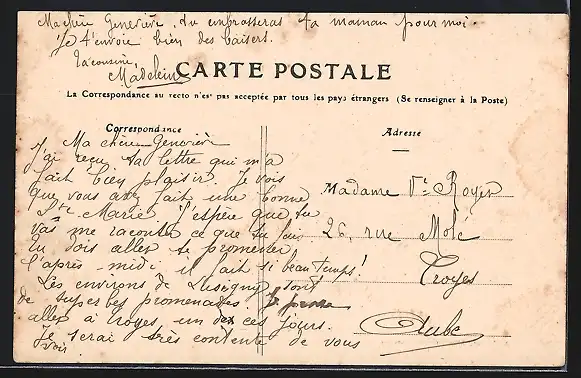 Ma chère Geneviève. tu embrasseras ta maman pour moi.
Je t'envoie bien des baisers.
Ta cousine,
Madeleine
CARTE POSTALE
La Correspondance au recto n'est pas acceptée par tous les pays étrangers (Se renseigner à la Poste)
Correspondance
Adresse
Ma chère Geneviève
J'ai reçu ta lettre qui m'a
fait bien plaisir. Je vois
que vous avez fait une bonne
Ste Marie j'espère que tu
vas me raconter ce que tu fais
Tu dois aller te promener
l'après midi il fait si beau temps!
Les environs de Lusigny sont
de superbes promenades. Je pense
aller à Troyes un de ces jours.
Je serai très contente de vous
voir.
Madame Vve Royer
26, rue Molé
Troyes
Aube